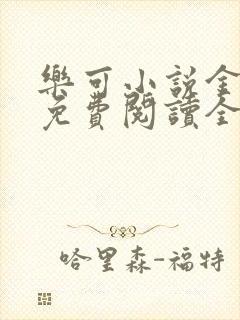 樂可小說全
免費閱讀全
哈里森-福特